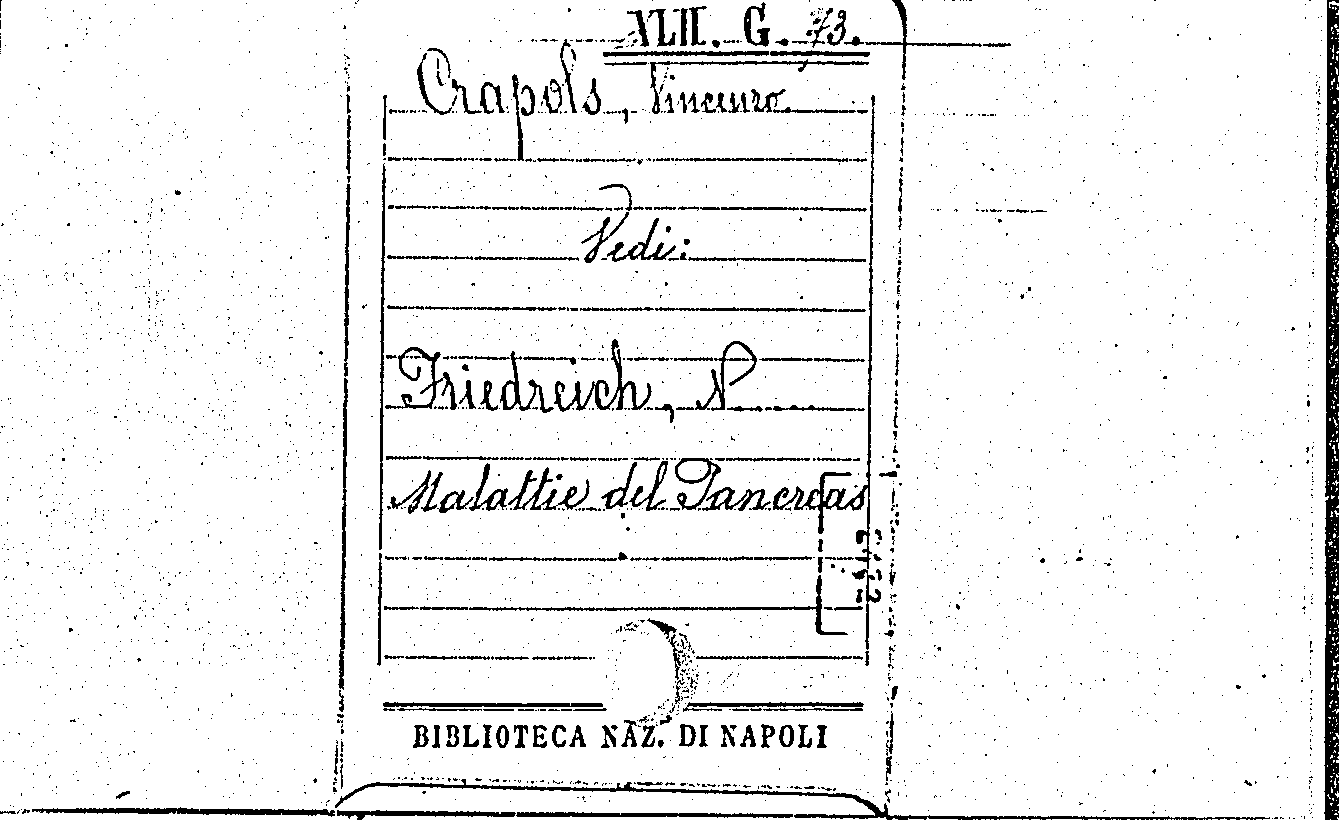 XLII. G. 73.
Crapols, Vincenzo.
Vedi:
Friedreich, N.....
Malattie del Pancreas
BIBLIOTECA NAZ. DI NAPOLI